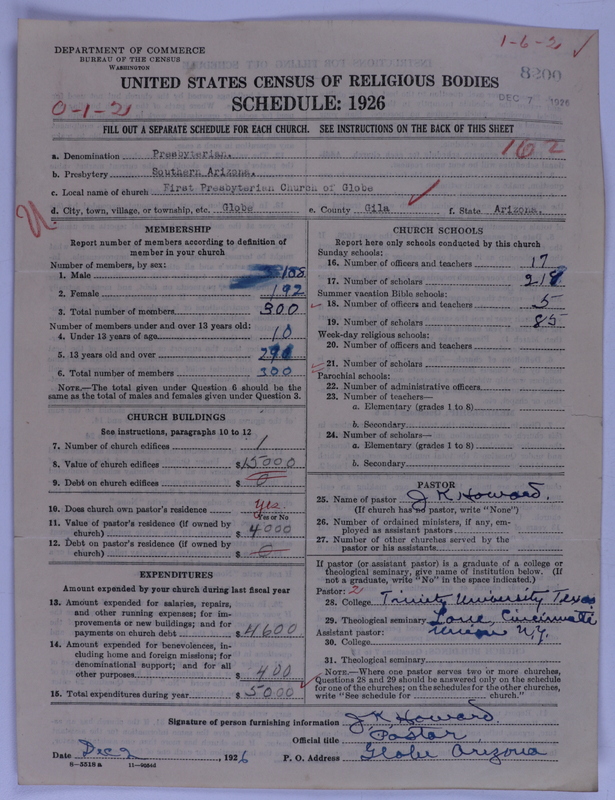 DEPARTMENT OF COMMERCE
BUREAU OF THE CENSUS
WASHINGTON
1-6-2
8200
DEC 7 1926
UNITED STATES CENSUS OF RELIGIOUS BODIES
SCHEDULE: 1926
0-1-2
FILL OUT A SEPARATE SCHEDULE FOR EACH CHURCH. SEE INSTRUCTIONS ON THE BACK OF THIS SHEET
162
a. Denomination Presbyterian.
b. Presbytery Southern Arizona.
c. Local name of church First Presbyterian Church of Globe
d. City, town, village, or township, etc. Globe e. County Gila f. State Arizona.
MEMBERSHIP
Report number of members according to definition of
member in your church
Number of members, by sex:
1. Male 108
2. Female 192
3. Total number of members 300
Number of members under and over 13 years old:
4. Under 13 years of age 10
5. 13 years old and over 290
6. Total number of members 300
NOTE.—The total given under Question 6 should be the
same as the total of males and females given under Question 3.
CHURCH BUILDINGS
See instructions, paragraphs 10 to 12
7. Number of church edifices 1
8. Value of church edifices $15000
9. Debt on church edifices $ 0
10. Does church own pastor's residence yes
Yes or No
11. Value of pastor's residence (if owned by
church) $ 4000
12. Debt on pastor's residence (if owned by
church) $ 0
EXPENDITURES
Amount expended by your church during last fiscal year
13. Amount expended for salaries, repairs,
and other running expenses; for im-
provements or new buildings; and for
payments on church debt $4600
14. Amount expended for benevolences, in-
cluding home and foreign missions; for
denominational support; and for all
other purposes $ 400
15. Total expenditures during year $5000
CHURCH SCHOOLS
Report here only schools conducted by this church
Sunday schools:
16. Number of officers and teachers 17
17. Number of scholars 218
Summer vacation Bible schools:
18. Number of officers and teachers 5
19. Number of scholars 85
Week-day religious schools:
20. Number of officers and teachers
21. Number of scholars
Parochial schools:
22. Number of administrative officers
23. Number of teachers—
a. Elementary (grades 1 to 8)
b. Secondary
24. Number of scholars—
a. Elementary (grades 1 to 8)
b. Secondary
PASTOR
25. Name of pastor J. K. Howard.
(If church has no pastor, write "None")
26. Number of ordained ministers, if any, em-
ployed as assistant pastors
27. Number of other churches served by the
pastor or his assistants
If pastor (or assistant pastor) is a graduate of a college or
theological seminary, give name of institution below. (If
not a graduate, write "No" in the space indicated.)
Pastor: 2
28. College Trinity University Texas
29. Theological seminary Lane, Cincinnatti
Assistant pastor: Union N.Y.
30. College
31. Theological seminary
NOTE.—Where one pastor serves two or more churches,
Questions 28 and 29 should be answered only on the schedule
for one of the churches; on the schedules for the other churches,
write "See schedule for church."
Signature of person furnishing information J. K. Howard
Official title Pastor
Date Dec 2, 1926 P. O. Address Globe Arizona
8—5518 a 11—9054d